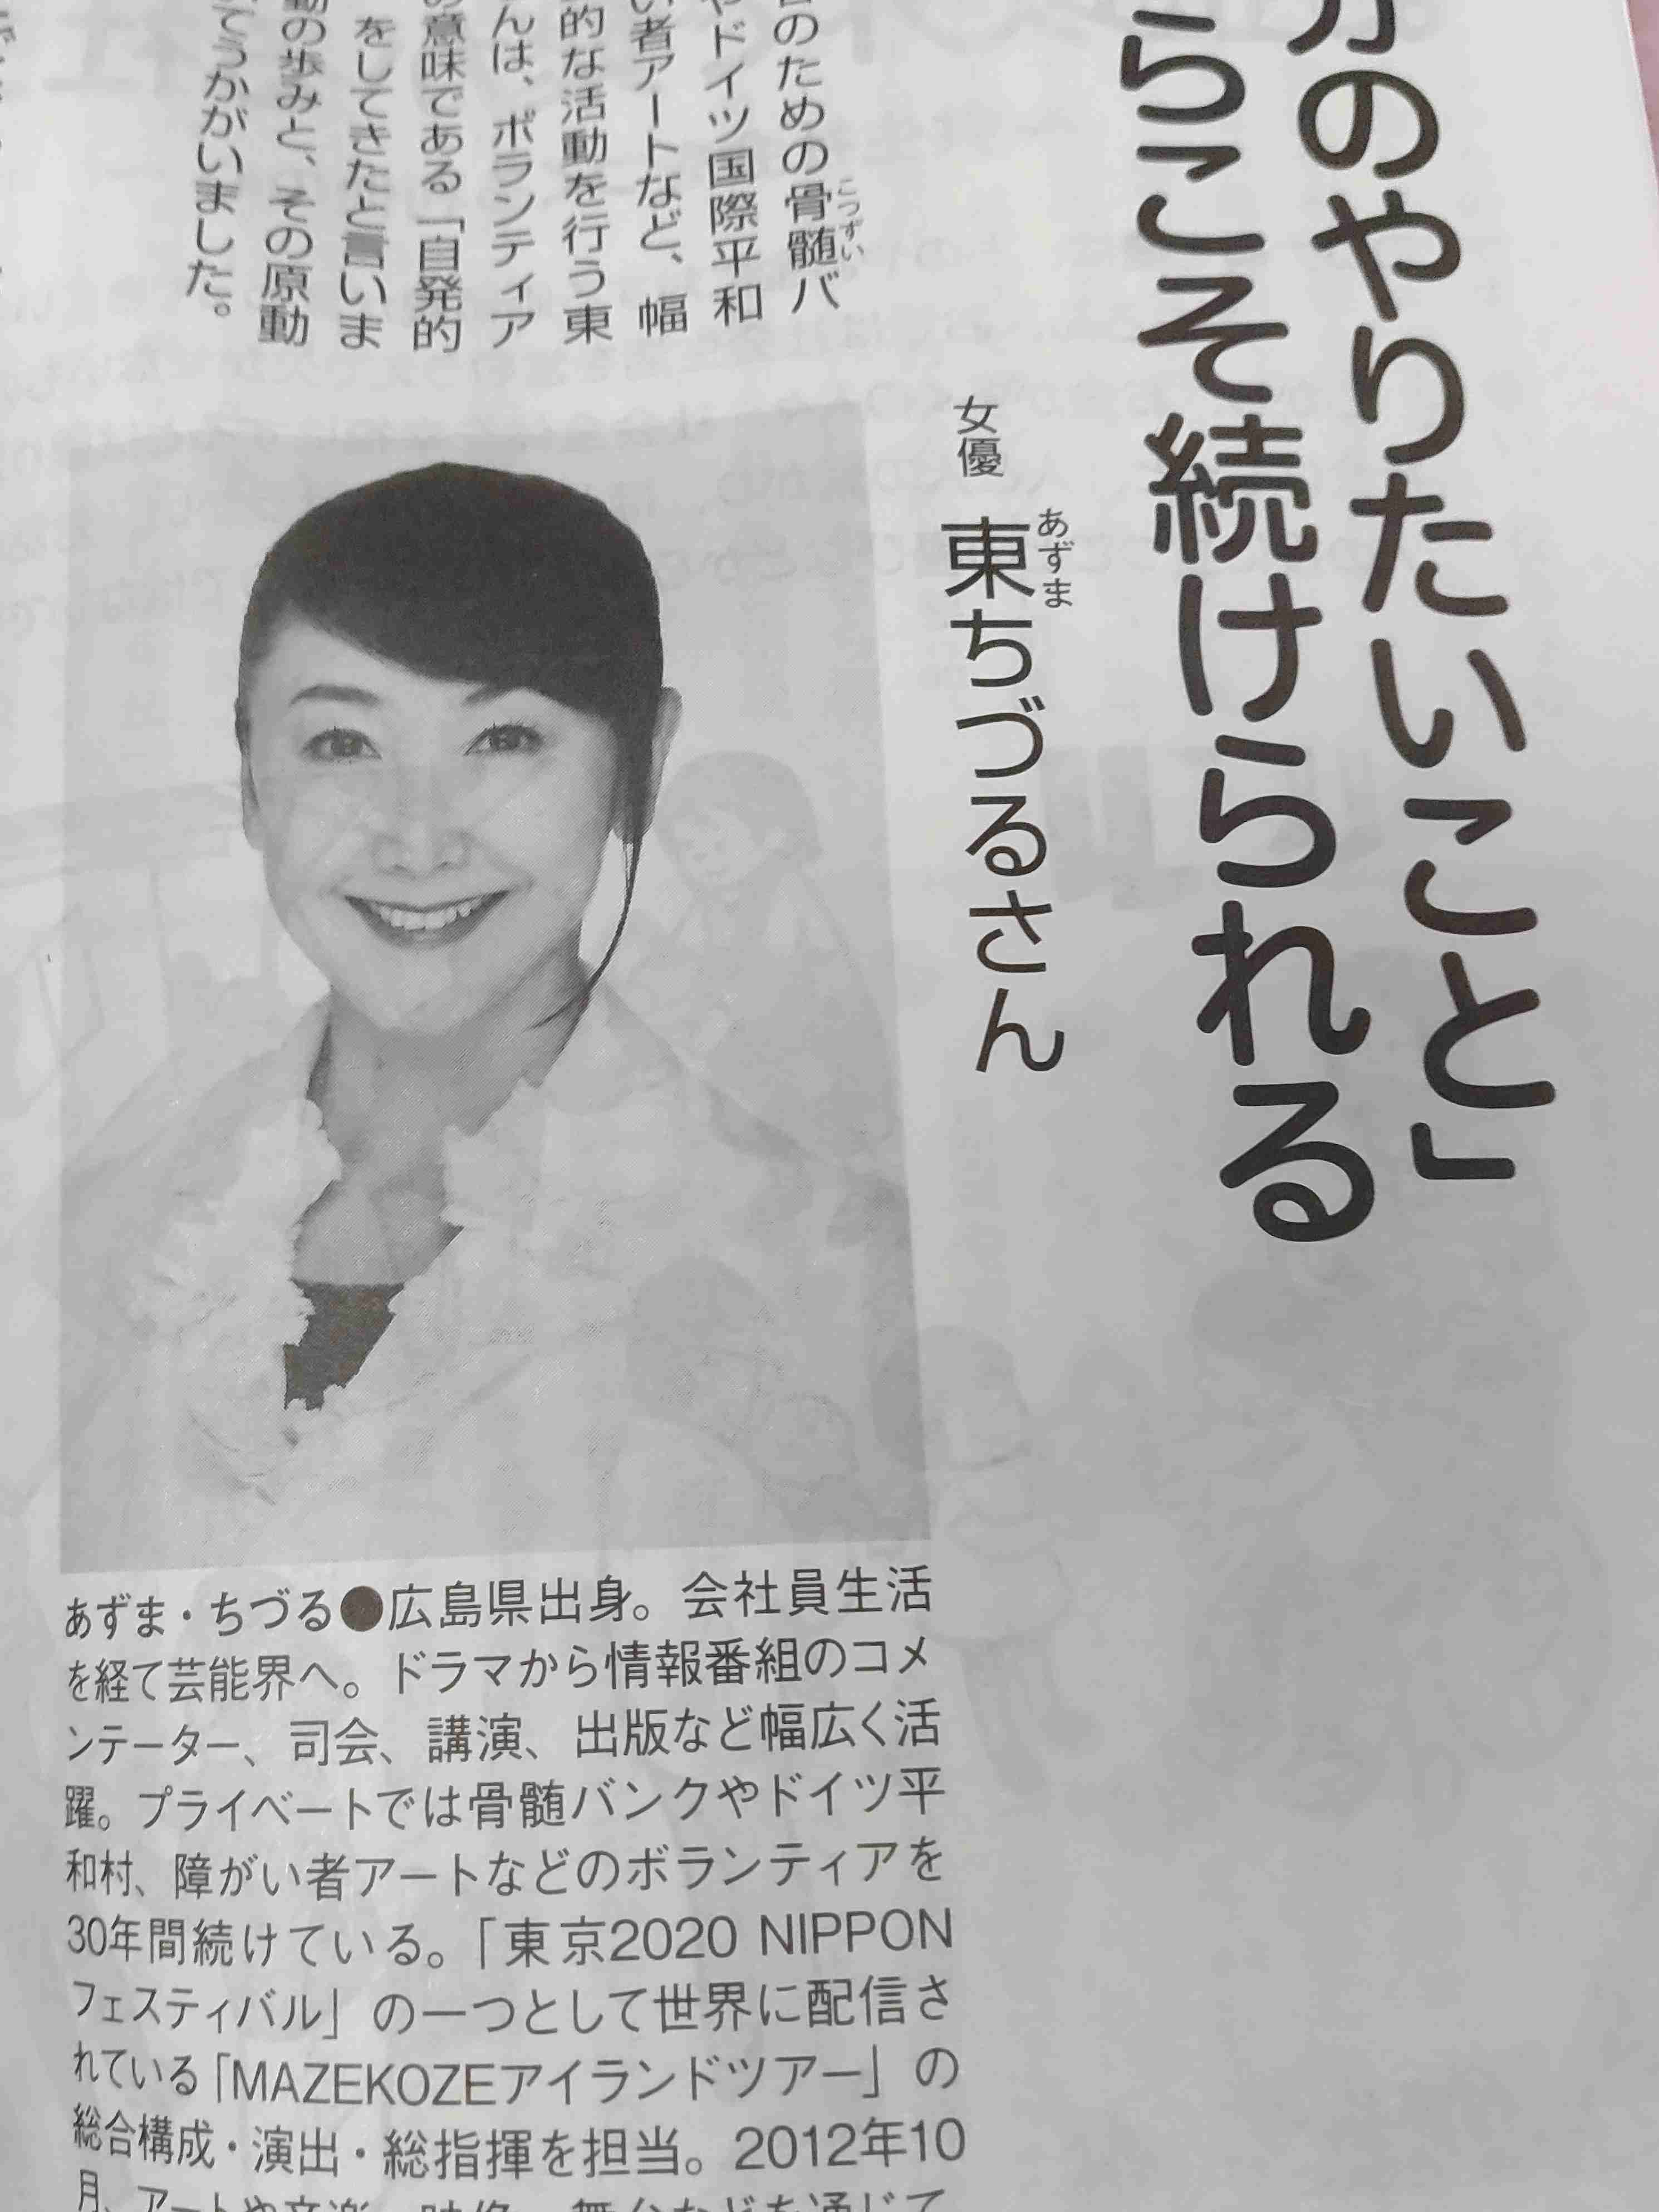 のやりたいこと」
らこそ続けられる
女優 東ちづるさん
あずま
のための骨髄バ
こつずい
ドイツ国際平和
い者アートなど、幅
的な活動を行う東
んは、ボランティア
意味である「自発的
をしてきたと言いま
動の歩みと、その原動
てうかがいました。
あずま・ちづる●広島県出身。会社員生活
を経て芸能界へ。ドラマから情報番組のコメ
ンテーター、司会、講演、出版など幅広く活
躍。プライベートでは骨髄バンクやドイツ平
和村、障がい者アートなどのボランティアを
30年間続けている。「東京2020 NIPPON
フェスティバル」の一つとして世界に配信さ
れている「MAZEKOZEアイランドツアー」の
総合構成・演出・総指揮を担当。2012年10
月、アートや音楽、映像、舞台などを通じて